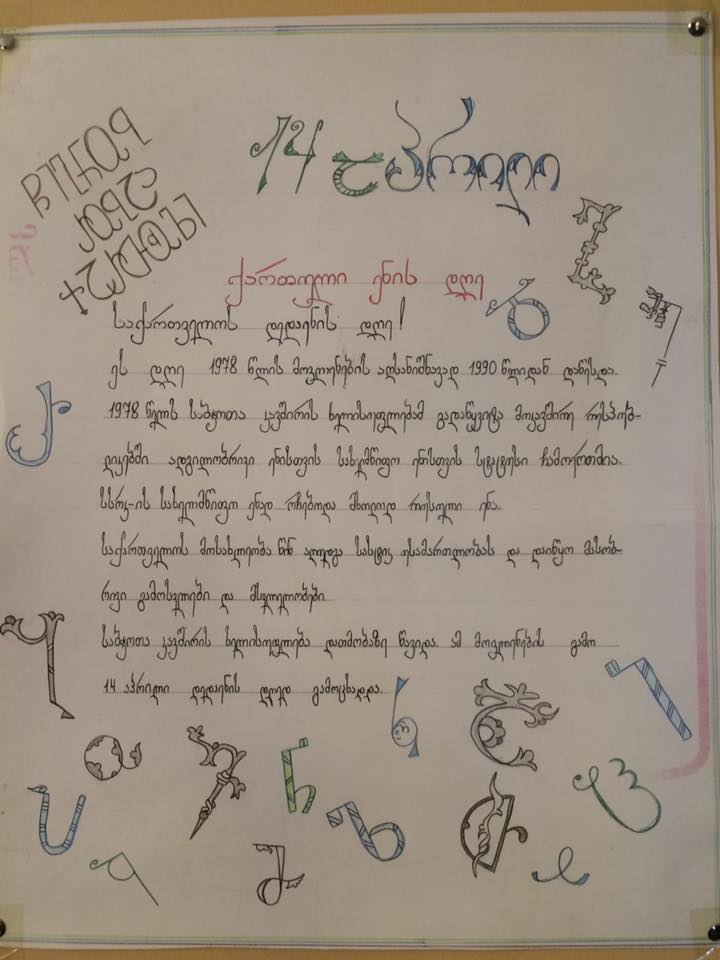 14 აპრილი
ქართული ენის დღე
საქართველოს დედაენის დღე!
ეს დღე 1978 წლის მოვლენების აღსანიშნავად 1990 წლიდან დაწესდა.
1978 წელს საბჭოთა კავშირის ხელისუფლებამ გადაწყვიტა მოკავშირე რესპუბ-
ლიკებში ადგილობრივი ენისთვის სახელმწიფო ენისთვის სტატუსი ჩამოერთმია.
სსრკ-ის სახელმწიფო ენად რჩებოდა მხოლოდ რუსული ენა.
საქართველოს მოსახლეობა წინ აღუდგა სასტიკ უსამართლობას და დაიწყო მასობ-
რივი გამოსვლები და მსვლელობები
საბჭოთა კავშირის ხელისუფლება დათმობაზე წავიდა. ამ მოვლენების გამო
14 აპრილი დედაენის დღედ გამოცხადდა.